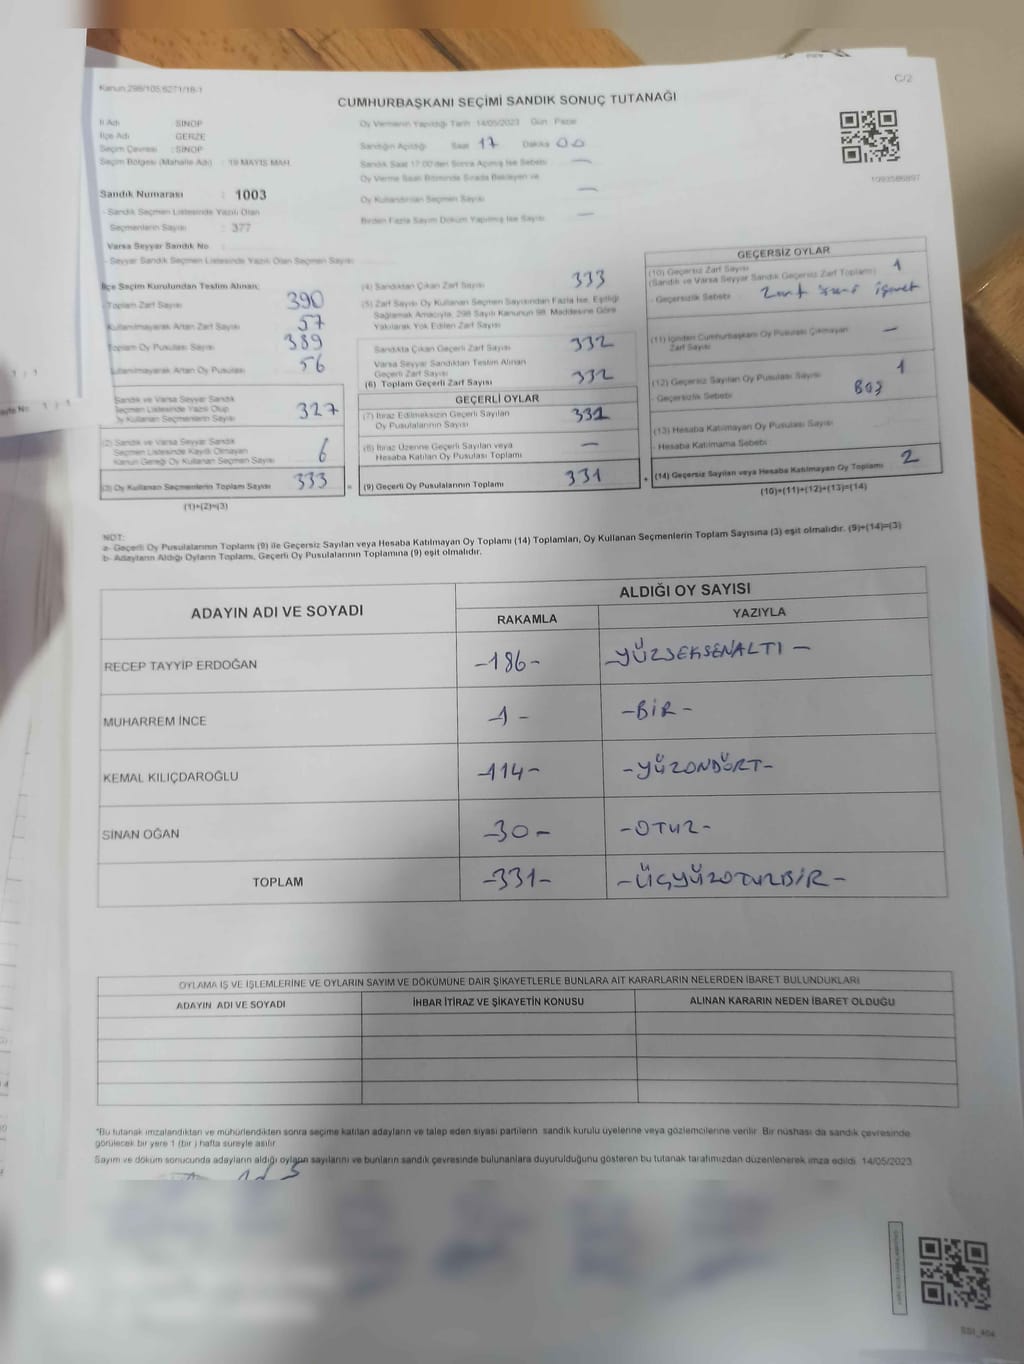 Kanun:298/105,6271/18-1
C/2
CUMHURBAŞKANI SEÇİMİ SANDIK SONUÇ TUTANAĞI
İl Adı : SİNOP
İlçe Adı : GERZE
Seçim Çevresi : SİNOP
Seçim Bölgesi (Mahalle Adı) : 19 MAYIS MAH.
Sandık Numarası : 1003
- Sandık Seçmen Listesinde Yazılı Olan
Seçmenlerin Sayısı : 377
Varsa Seyyar Sandık No :
- Seyyar Sandık Seçmen Listesinde Yazılı Olan Seçmen Sayısı :
Oy Vermenin Yapıldığı Tarih : 14/05/2023 Gün : Pazar
Sandığın Açıldığı Saat 17 Dakika 00
Sandık Saat 17:00'den Sonra Açılmış İse Sebebi —
Oy Verme Saati Bitiminde Sırada Bekleyen ve
Oy Kullandırılan Seçmen Sayısı —
Birden Fazla Sayım Döküm Yapılmış İse Sayısı —
1093586897
İlçe Seçim Kurulundan Teslim Alınan;
- Toplam Zarf Sayısı 390
Kullanılmayarak Artan Zarf Sayısı 57
Toplam Oy Pusulası Sayısı 389
Kullanılmayarak Artan Oy Pusulası 56
Sandık ve Varsa Seyyar Sandık
Seçmen Listesinde Yazılı Olup
Oy Kullanan Seçmenlerin Sayısı 327
(2) Sandık ve Varsa Seyyar Sandık
Seçmen Listesinde Kayıtlı Olmayan
Kanun Gereği Oy Kullanan Seçmen Sayısı 6
(3) Oy Kullanan Seçmenlerin Toplam Sayısı 333 =
(1)+(2)=(3)
(4) Sandıktan Çıkan Zarf Sayısı 333
(5) Zarf Sayısı Oy Kullanan Seçmen Sayısından Fazla İse, Eşitliği
Sağlamak Amacıyla, 298 Sayılı Kanunun 98. Maddesine Göre
Yakılarak Yok Edilen Zarf Sayısı
Sandıkta Çıkan Geçerli Zarf Sayısı 332
Varsa Seyyar Sandıktan Teslim Alınan
Geçerli Zarf Sayısı
(6) Toplam Geçerli Zarf Sayısı 332
GEÇERLİ OYLAR
(7) İtiraz Edilmeksizin Geçerli Sayılan
Oy Pusulalarının Sayısı 331
(8) İtiraz Üzerine Geçerli Sayılan veya
Hesaba Katılan Oy Pusulası Toplamı —
(9) Geçerli Oy Pusulalarının Toplamı 331 +
GEÇERSİZ OYLAR
(10) Geçersiz Zarf Sayısı
(Sandık ve Varsa Seyyar Sandık Geçersiz Zarf Toplamı) 1
- Geçersizlik Sebebi Zarf işaret
(11) İçinden Cumhurbaşkanı Oy Pusulası Çıkmayan
Zarf Sayısı —
(12) Geçersiz Sayılan Oy Pusulası Sayısı 1
- Geçersizlik Sebebi BOŞ
(13) Hesaba Katılmayan Oy Pusulası Sayısı
- Hesaba Katılmama Sebebi
(14) Geçersiz Sayılan veya Hesaba Katılmayan Oy Toplamı 2
(10)+(11)+(12)+(13)=(14)
NOT:
a- Geçerli Oy Pusulalarının Toplamı (9) ile Geçersiz Sayılan veya Hesaba Katılmayan Oy Toplamı (14) Toplamları, Oy Kullanan Seçmenlerin Toplam Sayısına (3) eşit olmalıdır. (9)+(14)=(3)
b- Adayların Aldığı Oyların Toplamı, Geçerli Oy Pusulalarının Toplamına (9) eşit olmalıdır.
ADAYIN ADI VE SOYADI
ALDIĞI OY SAYISI
RAKAMLA YAZIYLA
RECEP TAYYİP ERDOĞAN -186- -YÜZSEKSENALTI-
MUHARREM İNCE -1- -BİR-
KEMAL KILIÇDAROĞLU -114- -YÜZONDÖRT-
SİNAN OĞAN -30- -OTUZ-
TOPLAM -331- -ÜÇYÜZOTUZBİR-
OYLAMA İŞ VE İŞLEMLERİNE VE OYLARIN SAYIM VE DÖKÜMÜNE DAİR ŞİKAYETLERLE BUNLARA AİT KARARLARIN NELERDEN İBARET BULUNDUKLARI
ADAYIN ADI VE SOYADI İHBAR İTİRAZ VE ŞİKAYETİN KONUSU ALINAN KARARIN NEDEN İBARET OLDUĞU
*Bu tutanak imzalandıktan ve mühürlendikten sonra seçime katılan adayların ve talep eden siyasi partilerin sandık kurulu üyelerine veya gözlemcilerine verilir. Bir nüshası da sandık çevresinde
görülecek bir yere 1 (bir ) hafta süreyle asılır.
Sayım ve döküm sonucunda adayların aldığı oyların sayılarını ve bunların sandık çevresinde bulunanlara duyurulduğunu gösteren bu tutanak tarafımızdan düzenlenerek imza edildi. 14/05/2023